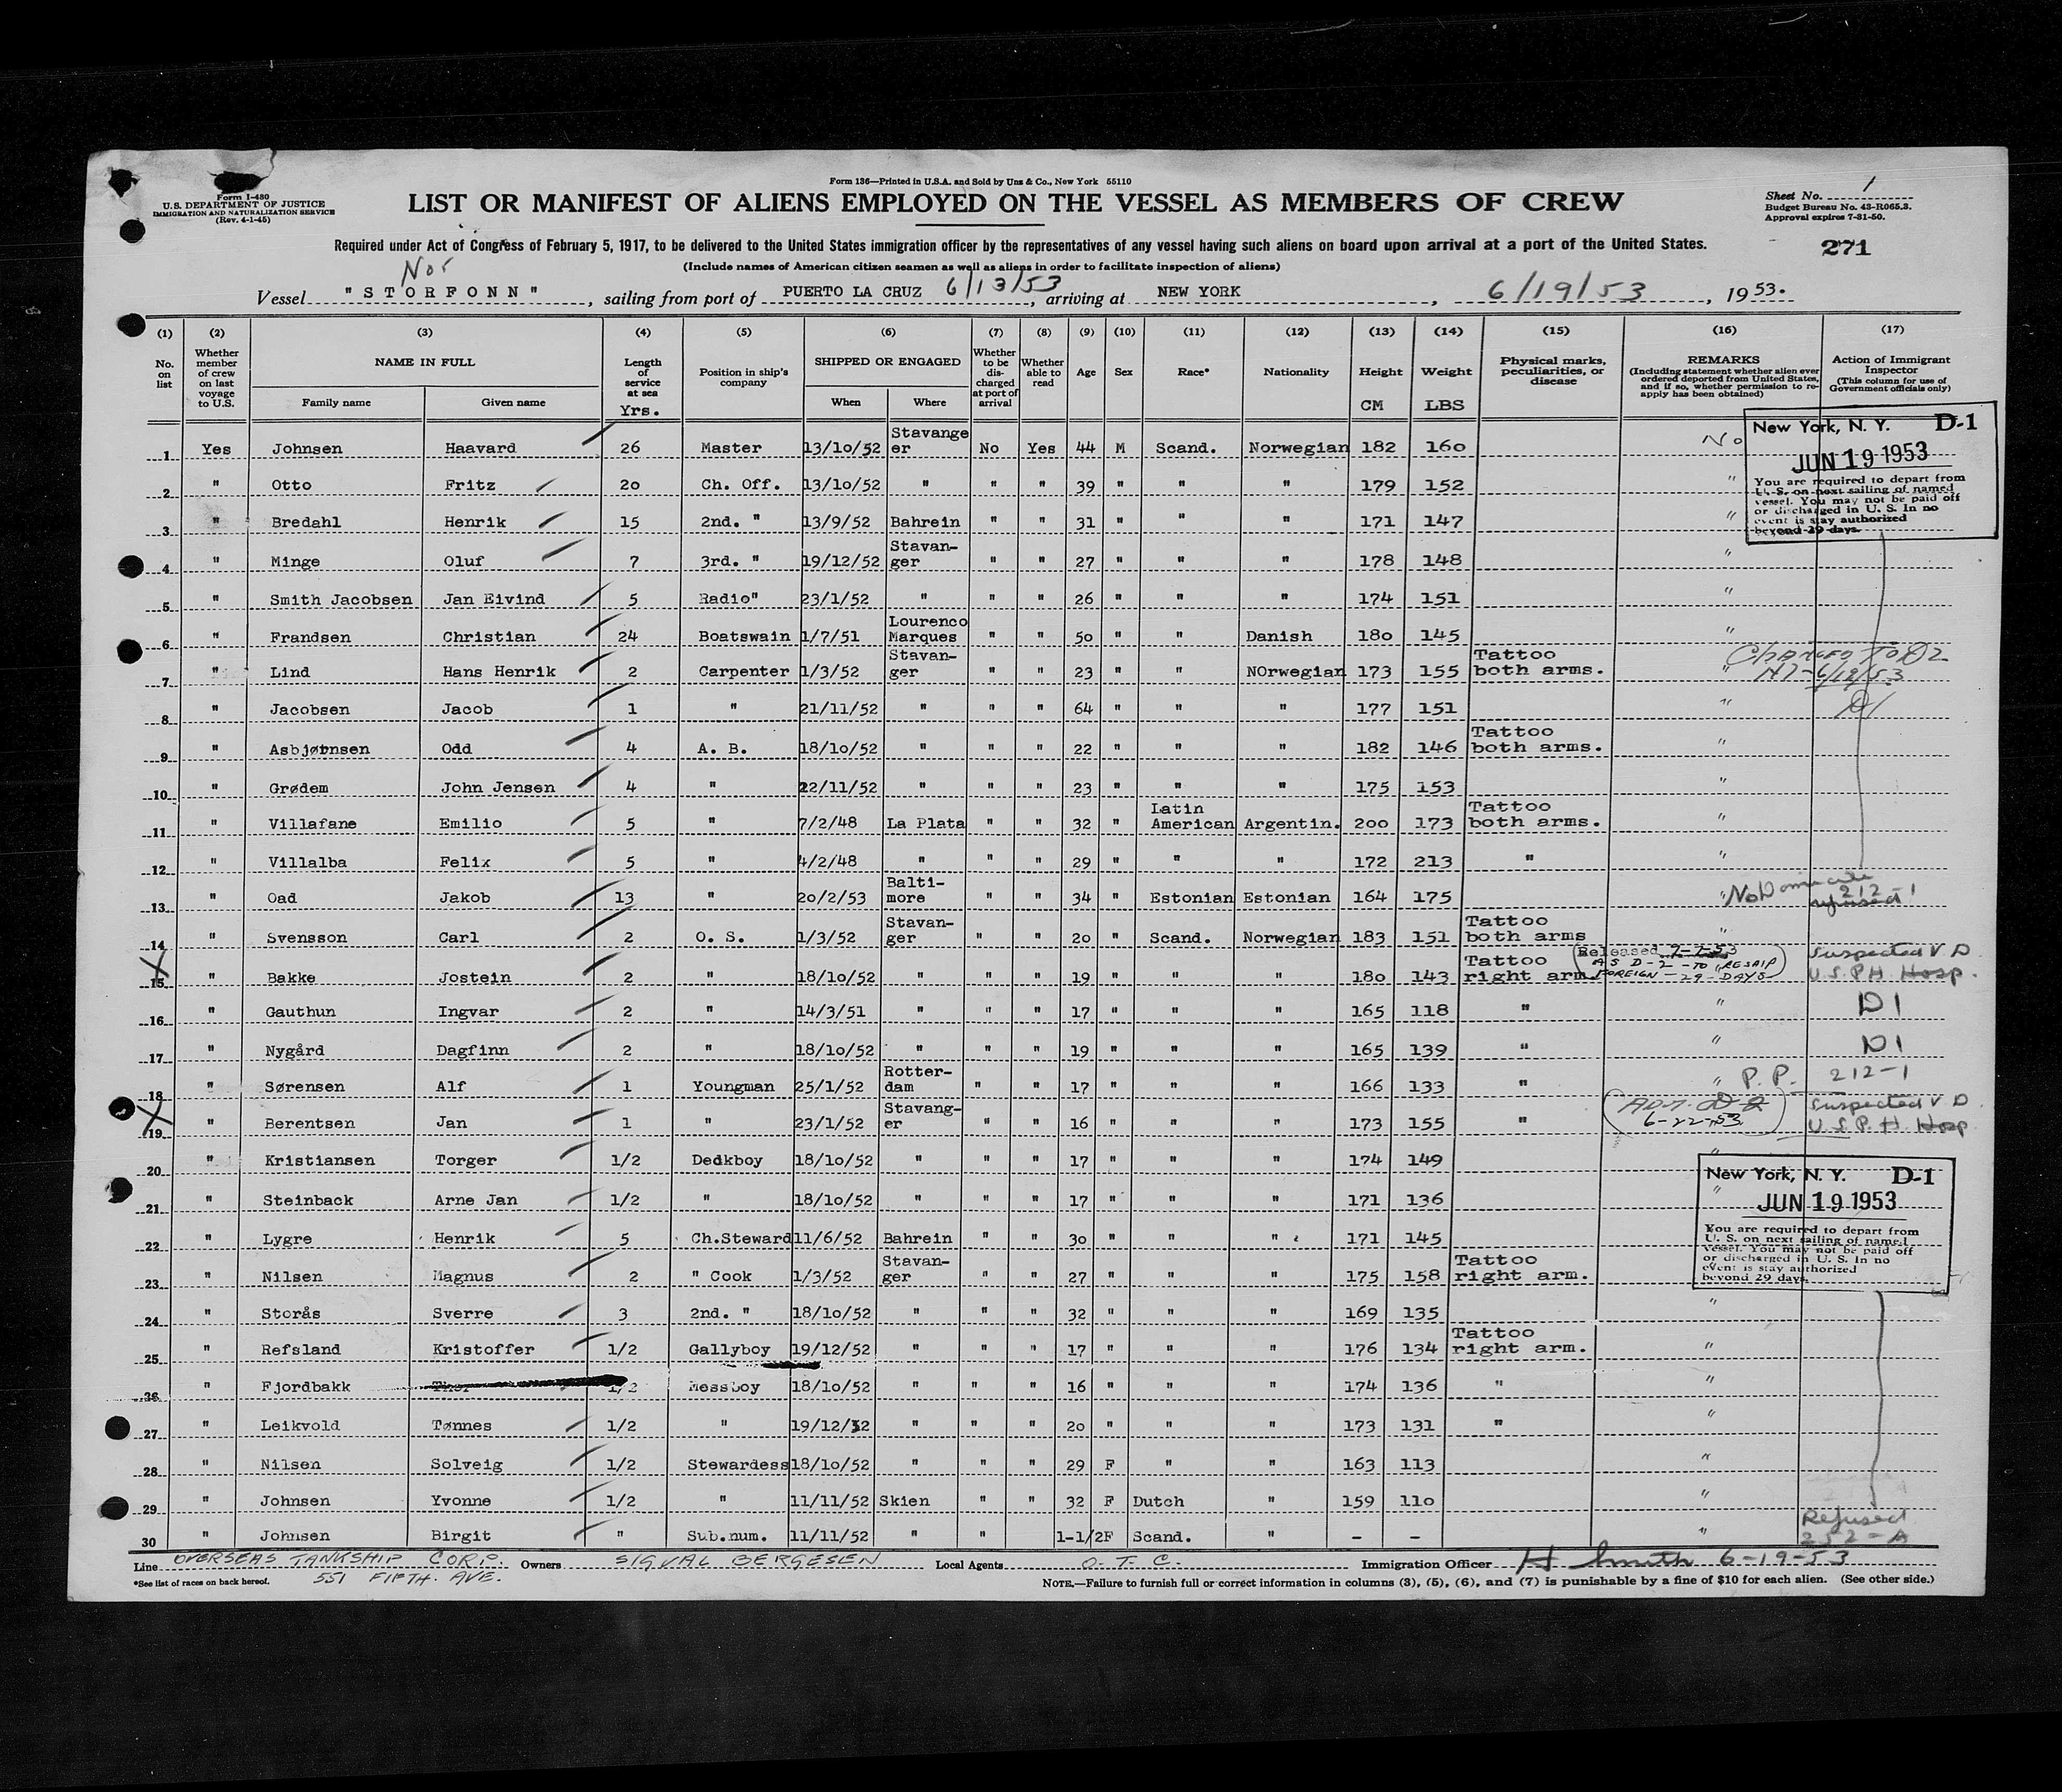 Form I-480
U.S. DEPARTMENT OF JUSTICE
IMMIGRATION AND NATURALIZATION SERVICE
(Rev. 4-1-45)
Form 136—Printed in U.S.A. and Sold by Unz & Co., New York 55110
LIST OR MANIFEST OF ALIENS EMPLOYED ON THE VESSEL AS MEMBERS OF CREW
Sheet No. 1
Budget Bureau No. 43-R065.3.
Approval expires 7-31-50.
271
Required under Act of Congress of February 5, 1917, to be delivered to the United States immigration officer by the representatives of any vessel having such aliens on board upon arrival at a port of the United States.
(Include names of American citizen seamen as well as aliens in order to facilitate inspection of aliens)
Nor
Vessel "STORFONN", sailing from port of PUERTO LA CRUZ 6/13/53, arriving at NEW YORK, 6/19/53, 1953.
(1) (2) (3) (4) (5) (6) (7) (8) (9) (10) (11) (12) (13) (14) (15) (16) (17)
No. on list
Whether member of crew on last voyage to U.S.
NAME IN FULL
Family name Given name
Length of service at sea Yrs.
Position in ship's company
SHIPPED OR ENGAGED
When Where
Whether to be discharged at port of arrival
Whether able to read
Age Sex Race* Nationality
Height CM
Weight LBS
Physical marks, peculiarities, or disease
REMARKS
(Including statement whether alien ever ordered deported from United States, and if so, whether permission to re-apply has been obtained)
Action of Immigrant Inspector
(This column for use of Government officials only)
1 Yes Johnsen Haavard 26 Master 13/10/52 Stavange er No Yes 44 M Scand. Norwegian 182 160 No
New York, N. Y. D-1
JUN 19 1953
You are required to depart from
U. S. on next sailing of named
vessel. You may not be paid off
or discharged in U. S. In no
event is stay authorized
beyond 29 days.
2 " Otto Fritz 20 Ch. Off. 13/10/52 " " " 39 " " " 179 152 "
3 " Bredahl Henrik 15 2nd. " 13/9/52 Bahrein " " 31 " " " 171 147 "
4 " Minge Oluf 7 3rd. " 19/12/52 Stavan- ger " " 27 " " " 178 148 "
5 " Smith Jacobsen Jan Eivind 5 Radio" 23/1/52 " " " 26 " " " 174 151 "
6 " Frandsen Christian 24 Boatswain 1/7/51 Lourenco Marques " " 50 " " Danish 180 145 "
7 " Lind Hans Henrik 2 Carpenter 1/3/52 Stavan- ger " " 23 " " NOrwegian 173 155 Tattoo both arms. " Changed To D2 6/19/53
8 " Jacobsen Jacob 1 " 21/11/52 " " " 64 " " " 177 151 " D1
9 " Asbjørnsen Odd 4 A. B. 18/10/52 " " " 22 " " " 182 146 Tattoo both arms. "
10 " Grødem John Jensen 4 " 22/11/52 " " " 23 " " " 175 153 "
11 " Villafane Emilio 5 " 7/2/48 La Plata " " 32 " Latin American Argentin. 200 173 Tattoo both arms. "
12 " Villalba Felix 5 " 4/2/48 " " " 29 " " " 172 213 " "
13 " Oad Jakob 13 " 20/2/53 Balti- more " " 34 " Estonian Estonian 164 175 " No Domicile 212-1 refused
14 " Svensson Carl 2 O. S. 1/3/52 Stavan- ger " " 20 " Scand. Norwegian 183 151 Tattoo both arms "
15 " Bakke Jostein 2 " 18/10/52 " " " 19 " " " 180 143 Tattoo right arm. Released 7-7-53 AS D-2-TO RESHIP FOREIGN-29-DAYS Suspected V D U.S.P.H. Hosp.
16 " Gauthun Ingvar 2 " 14/3/51 " " " 17 " " " 165 118 " " D1
17 " Nygård Dagfinn 2 " 18/10/52 " " " 19 " " " 165 139 " " D1
18 " Sørensen Alf 1 Youngman 25/1/52 Rotter- dam " " 17 " " " 166 133 " " P.P. 212-1
19 " Berentsen Jan 1 " 23/1/52 Stavang- er " " 16 " " " 173 155 " 6-22-53 Suspected V D U.S.P.H. Hosp
20 " Kristiansen Torger 1/2 Dedkboy 18/10/52 " " " 17 " " " 174 149 "
21 " Steinback Arne Jan 1/2 " 18/10/52 " " " 17 " " " 171 136 "
New York, N. Y. D-1
JUN 19 1953
You are required to depart from
U. S. on next sailing of named
vessel. You may not be paid off
or discharged in U. S. In no
event is stay authorized
beyond 29 days.
22 " Lygre Henrik 5 Ch.Steward 11/6/52 Bahrein " " 30 " " " 171 145
23 " Nilsen Magnus 2 " Cook 1/3/52 Stavan- ger " " 27 " " " 175 158 Tattoo right arm.
24 " Storås Sverre 3 2nd. " 18/10/52 " " " 32 " " " 169 135 "
25 " Refsland Kristoffer 1/2 Gallyboy 19/12/52 " " " 17 " " " 176 134 Tattoo right arm. "
26 " Fjordbakk 1/2 Messboy 18/10/52 " " " 16 " " " 174 136 " "
27 " Leikvold Tønnes 1/2 " 19/12/52 " " " 20 " " " 173 131 " "
28 " Nilsen Solveig 1/2 Stewardess 18/10/52 " " " 29 F " " 163 113 "
29 " Johnsen Yvonne 1/2 " 11/11/52 Skien " " 32 F Dutch " 159 110 "
30 " Johnsen Birgit " Sub.num. 11/11/52 " " 1-1/2 F Scand. " - - " Refused 252-A
Line OVERSEAS TANKSHIP CORP. Owners SIGVAL BERGESEN Local Agents O. T. C. Immigration Officer H Smith 6-19-53
551 FIFTH. AVE.
*See list of races on back hereof.
NOTE.—Failure to furnish full or correct information in columns (3), (5), (6), and (7) is punishable by a fine of $10 for each alien. (See other side.)